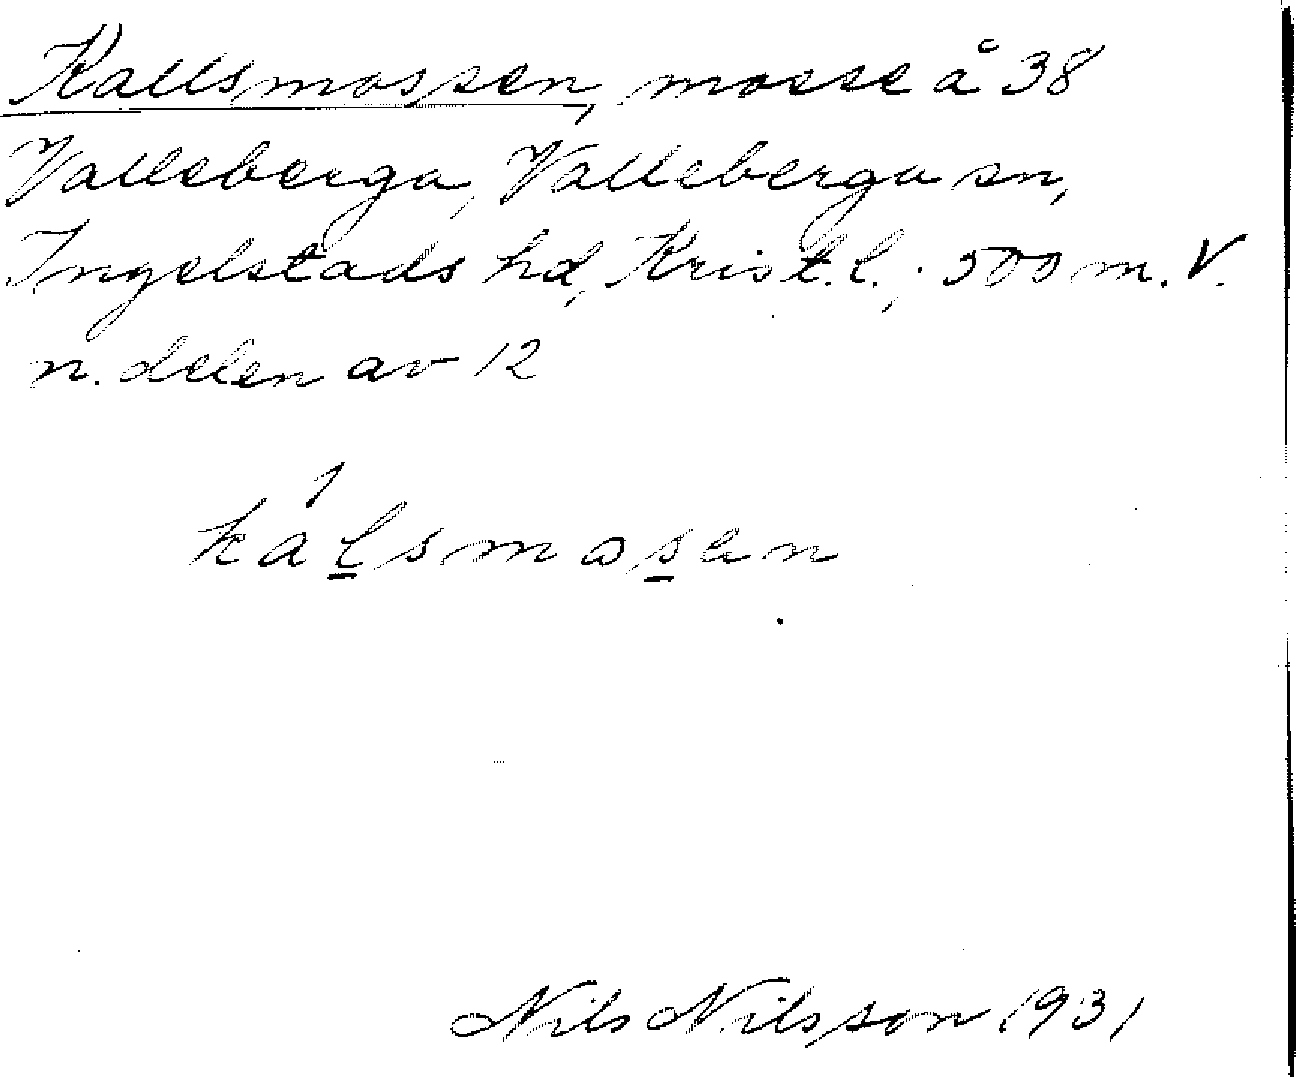 Kallsmossen, mosse å 38
Valleberga, Valleberga sn,
Ingelstads hd, Krist. l.; 500 m. V.
n. delen av 12
kál̲smos̲en
Nils Nilsson 1931